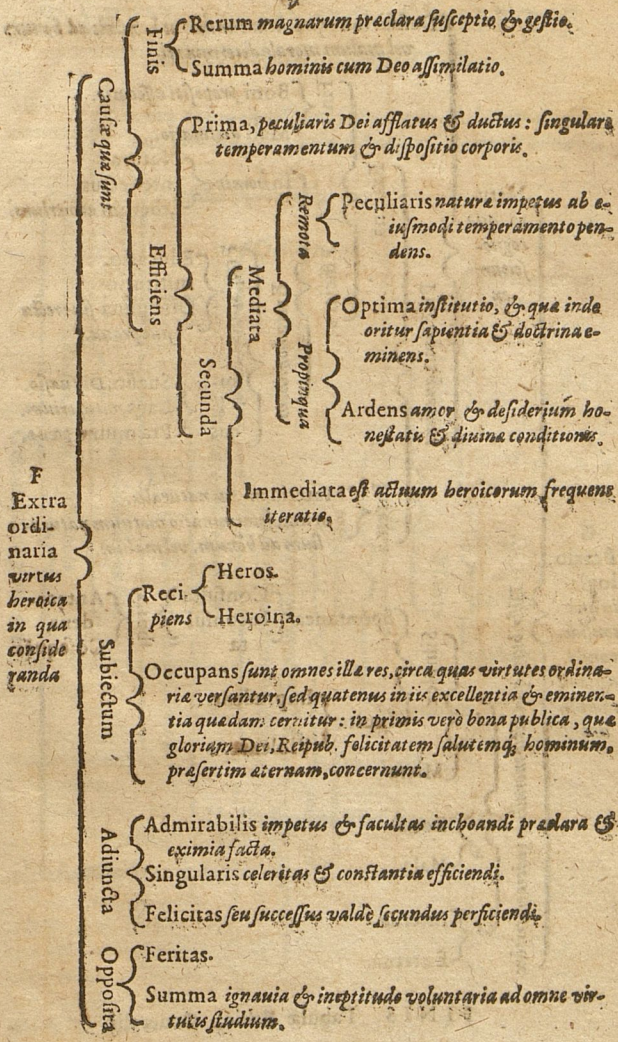 F
Extra
ordi-
naria
virtus
heroica
in qua
conside
randa
Causæ quæ sunt
Finis
Rerum magnarum præclara susceptio & gestio.
Summa hominis cum Deo assimilatio.
Efficiens
Prima, peculiaris Dei afflatus & ductus: singulare
temperamentum & dispositio corporis.
Secunda
Mediata
Remota
Peculiaris naturæ impetus ab e-
iusmodi temperamento pen-
dens.
Propinqua
Optima institutio, & quæ inde
oritur sapientia & doctrina e-
minens.
Ardens amor & desiderium ho-
nestatis & diuinæ conditionis.
Immediata est actuum heroicorum frequens
iteratio.
Subiectum
Reci-
piens
Heros.
Heroina.
Occupans sunt omnes illæ res, circa quas virtutes ordina-
riæ versantur, sed quatenus in iis excellentia & eminen-
tia quædam cernitur: in primis verò bona publica, quæ
gloriam Dei, Reipub. felicitatem salutemq; hominum,
præsertim æternam, concernunt.
Adiuncta
Admirabilis impetus & facultas inchoandi præclara &
eximia facta.
Singularis celeritas & constantia efficiendi.
Felicitas seu successus valdè secundus perficiendi.
Opposita
Feritas.
Summa ignauia & ineptitudo voluntaria ad omne vir-
tutis studium.